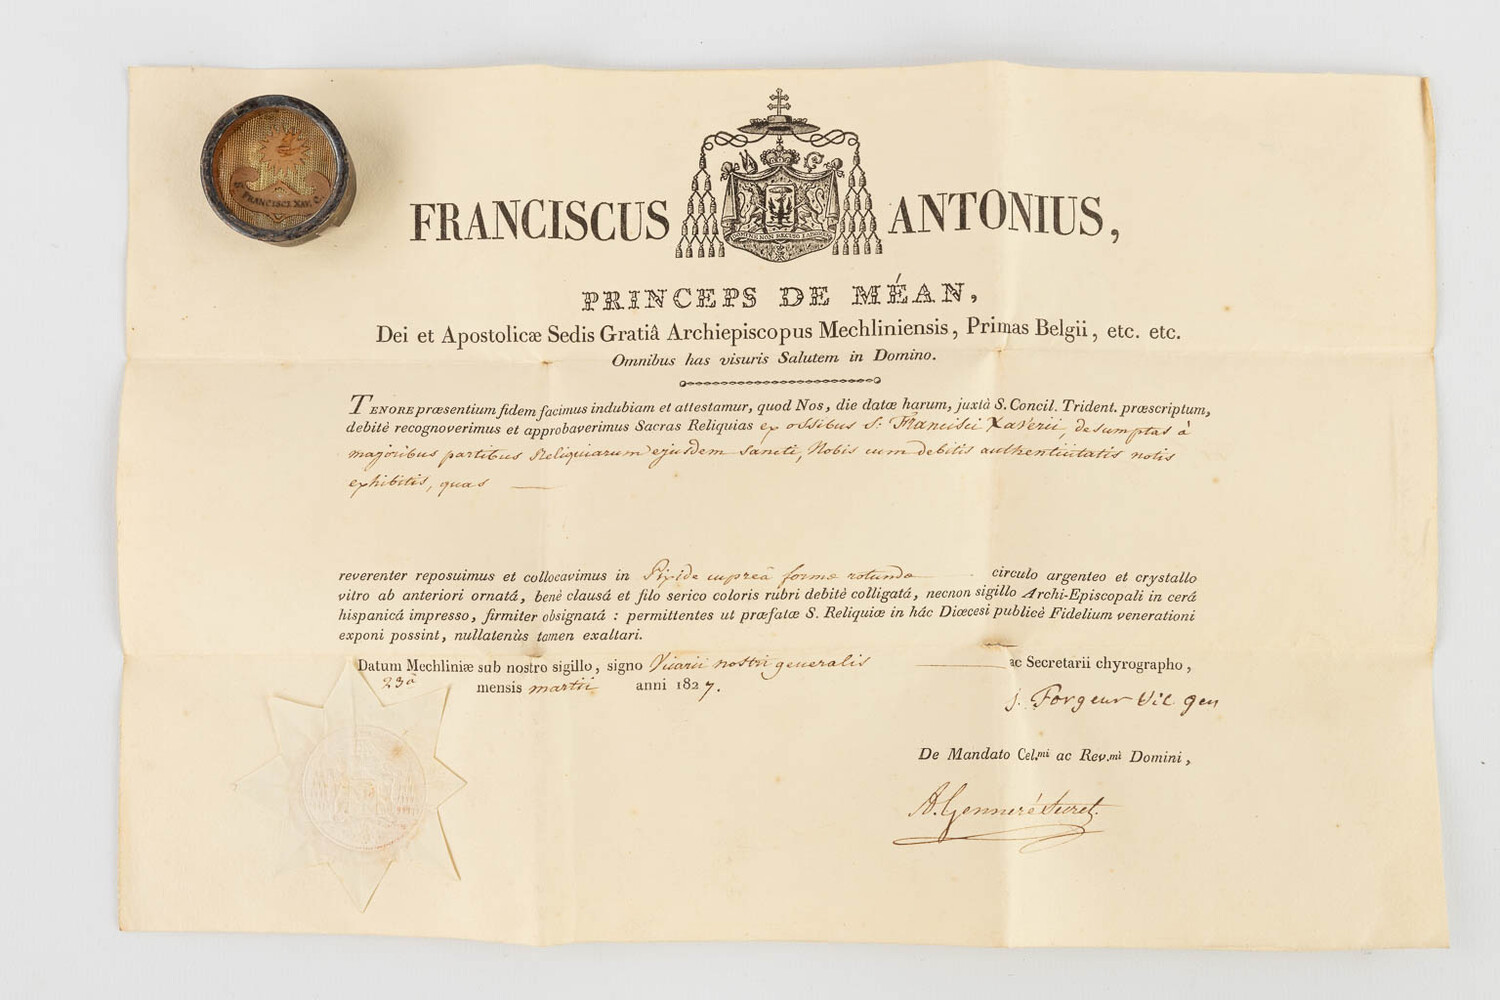 S. FRANCISCI XAV. C.
FRANCISCUS ANTONIUS,
PRINCEPS DE MÉAN,
Dei et Apostolicæ Sedis Gratiâ Archiepiscopus Mechliniensis, Primas Belgii, etc. etc.
Omnibus has visuris Salutem in Domino.
TENORE præsentium fidem facimus indubiam et attestamur, quod Nos, die datæ harum, juxtà S. Concil. Trident. præscriptum,
debitè recognoverimus et approbaverimus Sacras Reliquias ex ossibus S. Francisci Xaverii, desumptas à
majoribus partibus Reliquiarum ejusdem sancti, Nobis cum debitis authenticitatis notis
exhibitis, quas
reverenter reposuimus et collocavimus in Pixide cupreâ formæ rotundæ circulo argenteo et crystallo
vitro ab anteriori ornatá, benè clausá et filo serico coloris rubri debitè colligatá, necnon sigillo Archi-Episcopali in cerá
hispanicá impresso, firmiter obsignatá : permittentes ut præfatæ S. Reliquiæ in hác Diœcesi publicè Fidelium venerationi
exponi possint, nullatenùs tamen exaltari.
Datum Mechliniæ sub nostro sigillo, signo Vicarii nostri generalis ac Secretarii chyrographo,
23â mensis martii anni 1827.
J. Forgeur Vic gen
De Mandato Cel.mi ac Rev.mi Domini,
Secret.